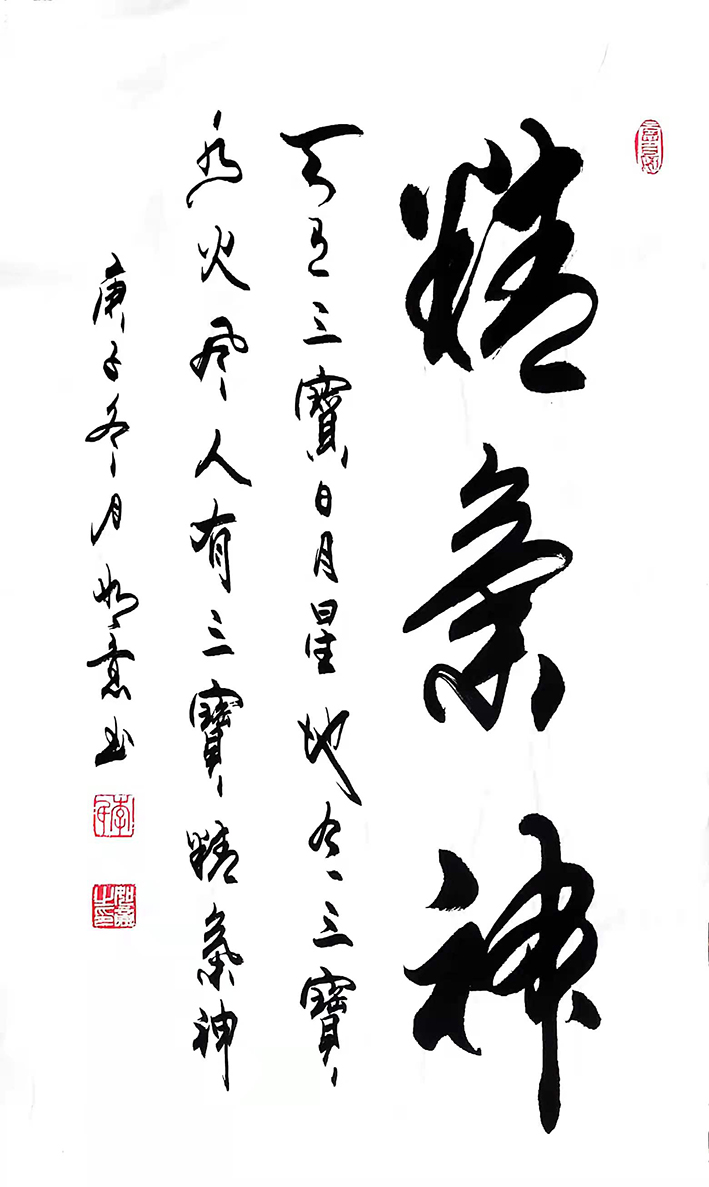 精氣神
天有三寶日月星地有三寶
水火風人有三寶精氣神
庚子冬月如意書